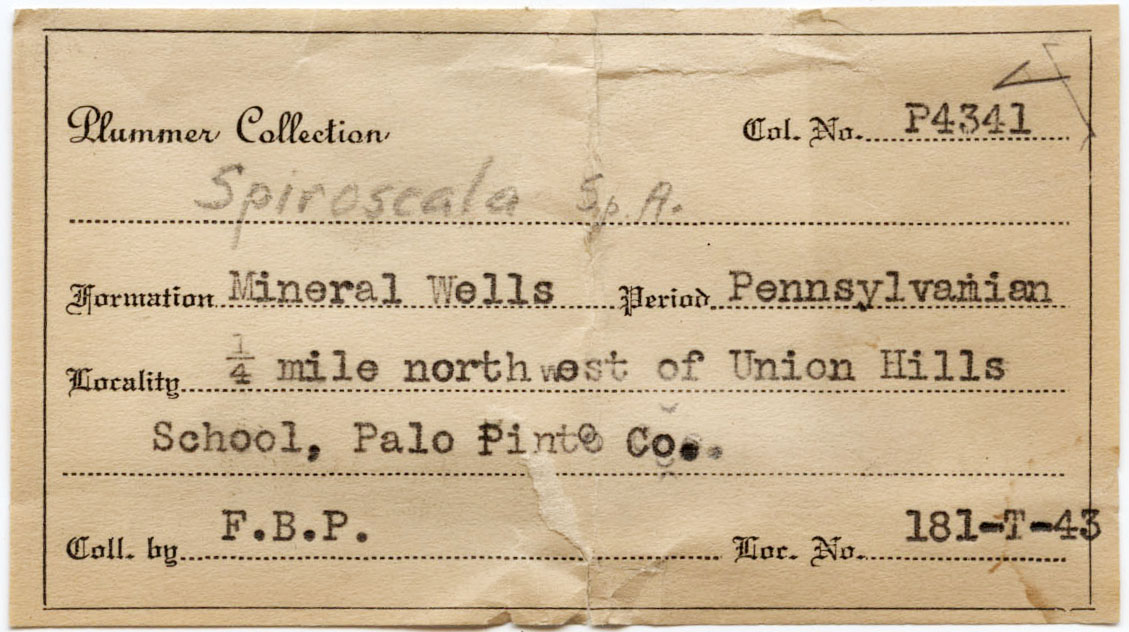 Plummer Collection Col. No. P4341
Spiroscala Sp. A.
Formation Mineral Wells Period Pennsylvanian
Locality 1/4 mile northwest of Union Hills
School, Palo Pinto Co.
Coll. by F.B.P. Loc. No. 181-T-43